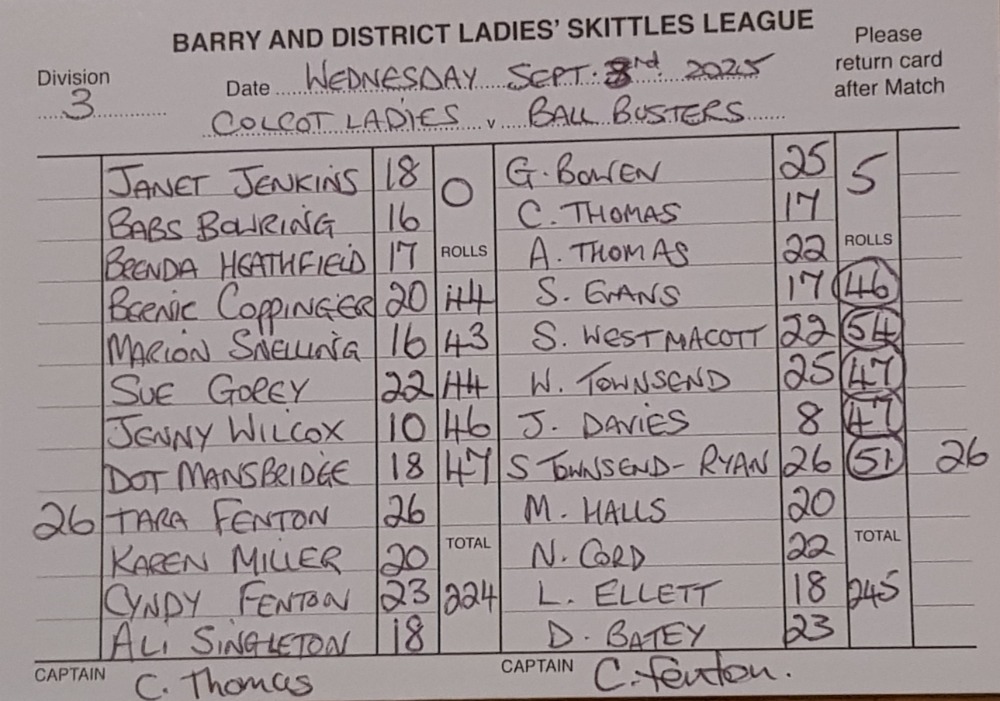 BARRY AND DISTRICT LADIES' SKITTLES LEAGUE
Please return card after Match
Division 3
Date WEDNESDAY SEPT. 3rd. 2025
COLCOT LADIES v BALL BUSTERS
JANET JENKINS 18 0 G. BOWEN 25 5
BABS BOWRING 16 C. THOMAS 17
BRENDA HEATHFIELD 17 ROLLS A. THOMAS 22 ROLLS
BERNIE COPPINGER 20 44 S. EVANS 17 46
MARION SNELLING 16 43 S. WESTMACOTT 22 54
SUE GOREY 22 44 W. TOWNSEND 25 47
JENNY WILCOX 10 46 J. DAVIES 8 47
DOT MANSBRIDGE 18 47 S TOWNSEND-RYAN 26 51 26
26 TARA FENTON 26 M. HALLS 20
KAREN MILLER 20 TOTAL N. CORD 22 TOTAL
CYNDY FENTON 23 224 L. ELLETT 18 245
ALI SINGLETON 18 D. BATEY 23
CAPTAIN C. Thomas CAPTAIN C. fenton.